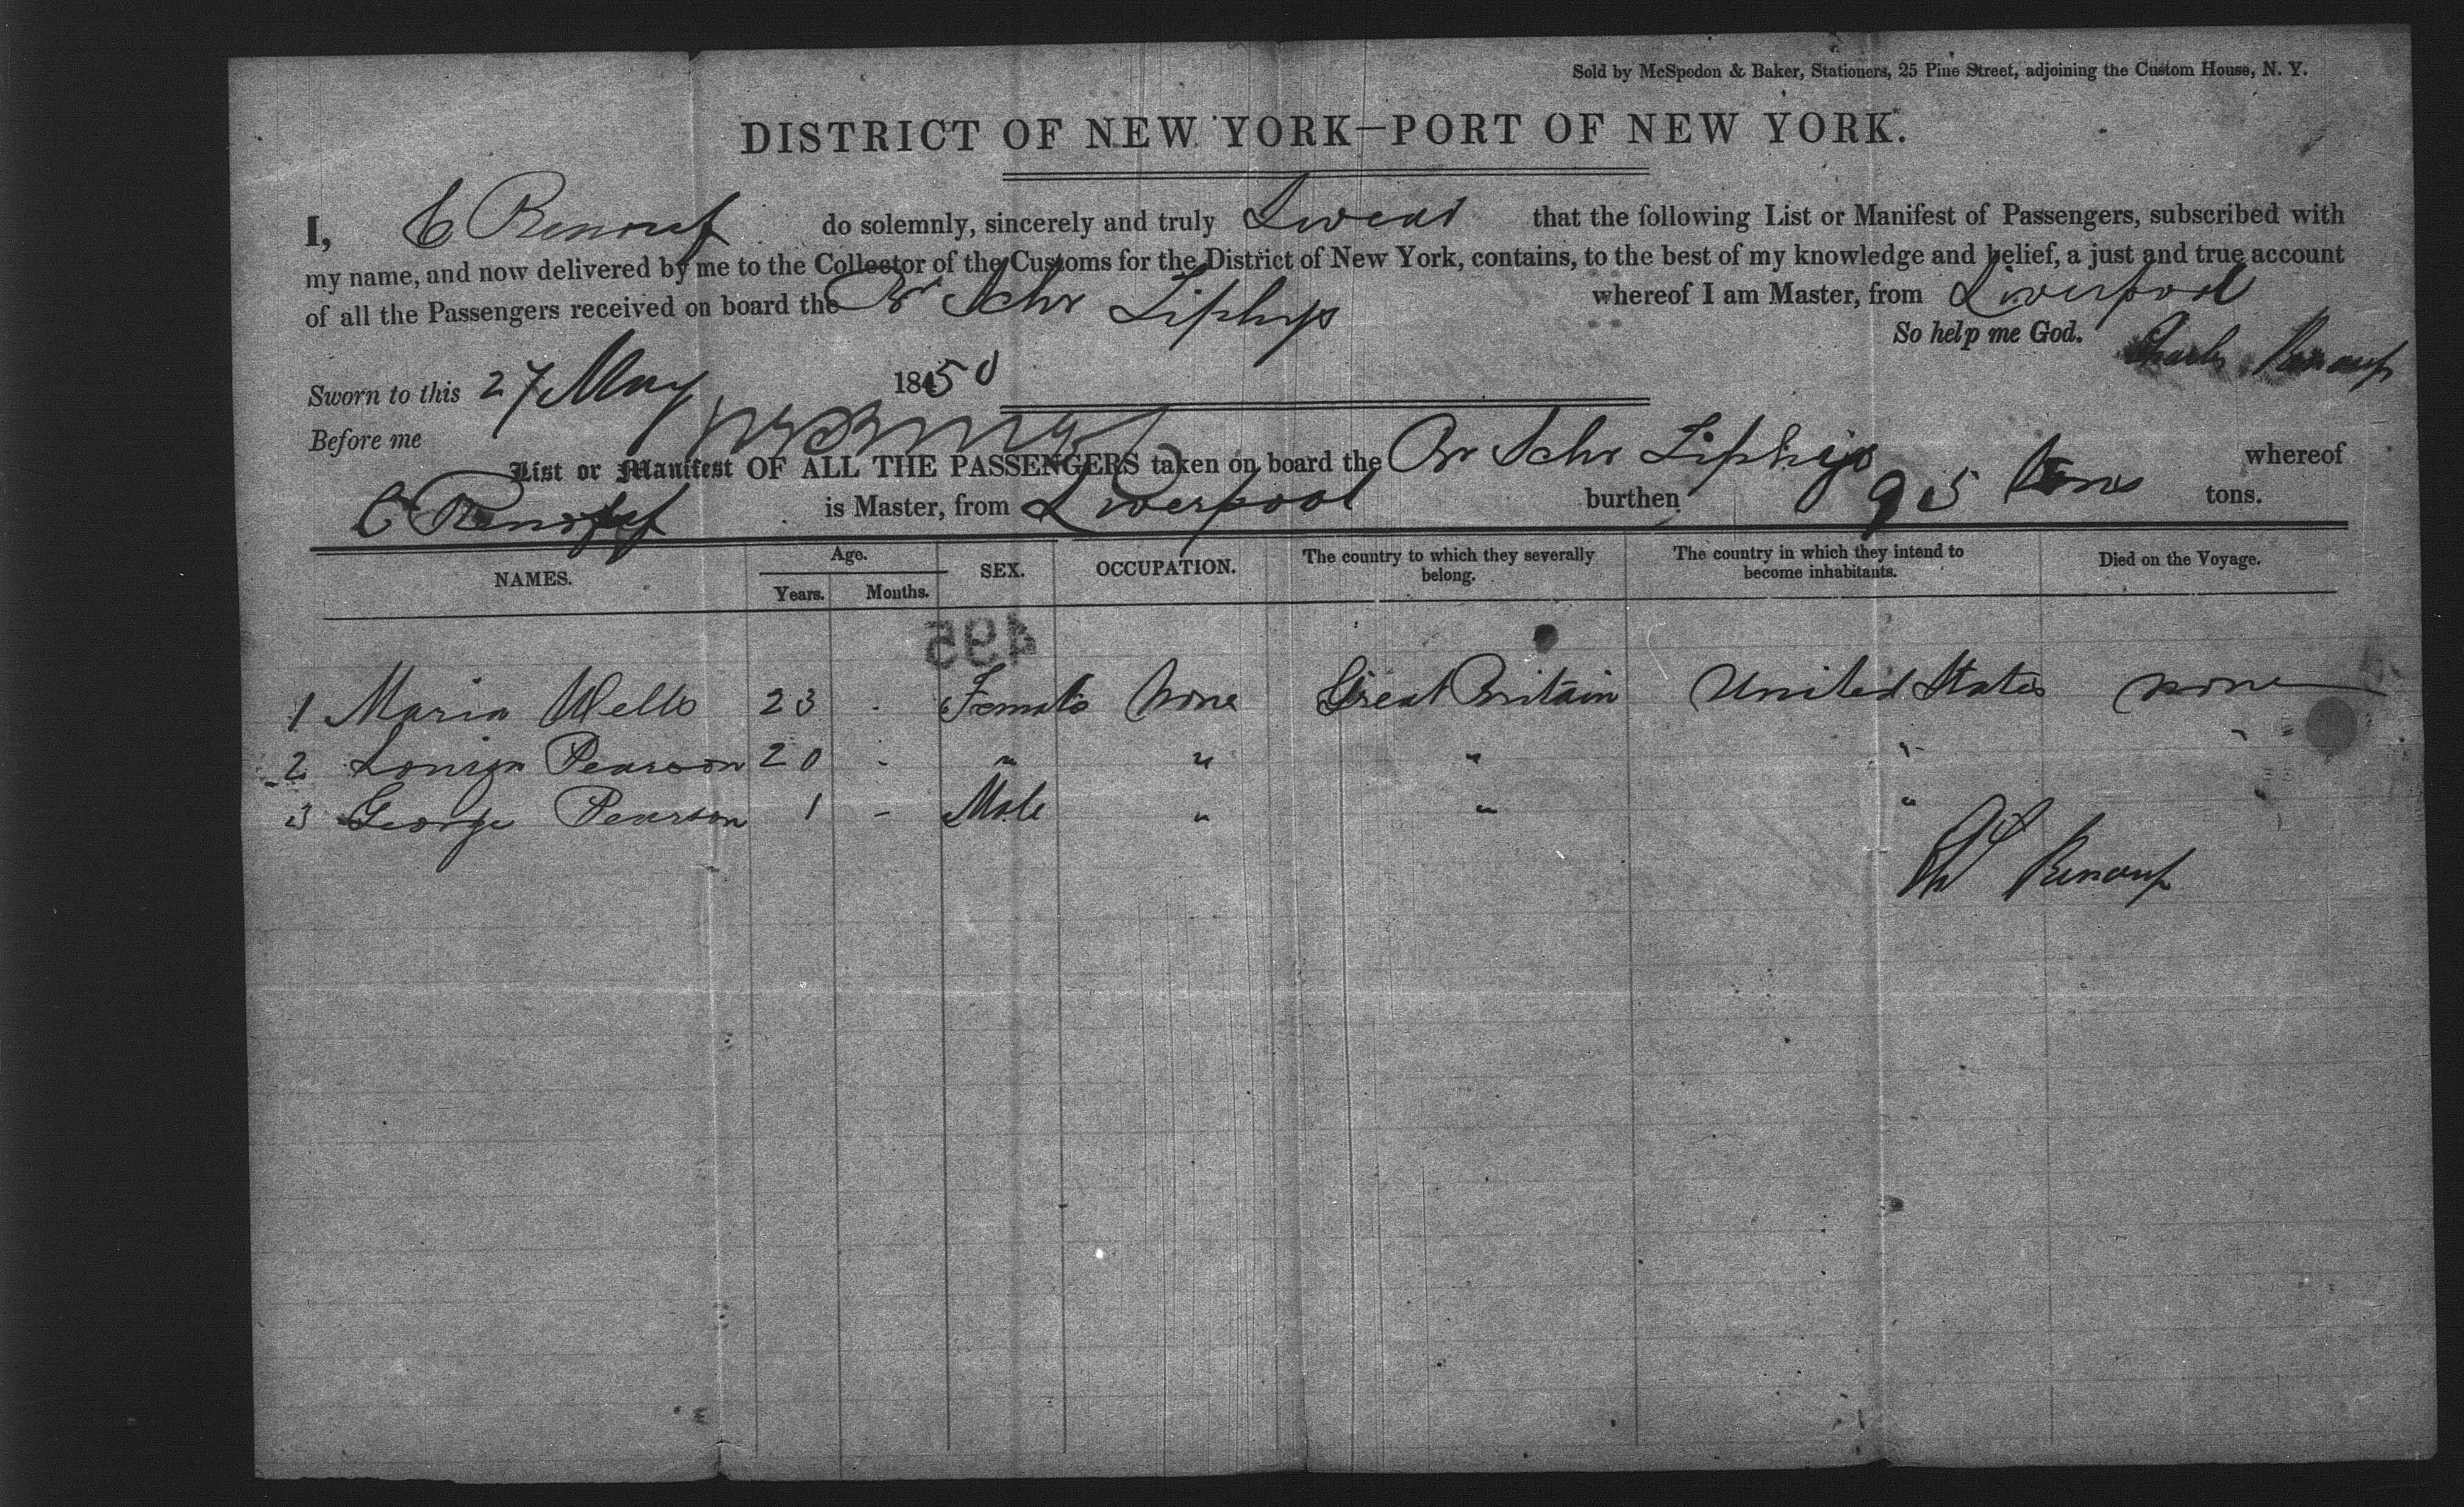 Sold by McSpedon & Baker, Stationers, 25 Pine Street, adjoining the Custom House, N. Y.
DISTRICT OF NEW YORK—PORT OF NEW YORK.
I, C Renouf do solemnly, sincerely and truly Swear that the following List or Manifest of Passengers, subscribed with
my name, and now delivered by me to the Collector of the Customs for the District of New York, contains, to the best of my knowledge and belief, a just and true account
of all the Passengers received on board the Br Schr Ziphys whereof I am Master, from Liverpool
So help me God. Charles Renouf
Sworn to this 27 May 1850
Before me
List or Manifest OF ALL THE PASSENGERS taken on board the Br Schr Ziphys whereof
C Renouf is Master, from Liverpool burthen 95 Tons tons.
NAMES. Age. Years. Months. SEX. OCCUPATION. The country to which they severally belong. The country in which they intend to become inhabitants. Died on the Voyage.
495
1 Maria Wells 23 - Female None Great Britain United States none
2 Louiza Pearson 20 - " " " " "
3 George Pearson 1 - Male " " " "
Renouf